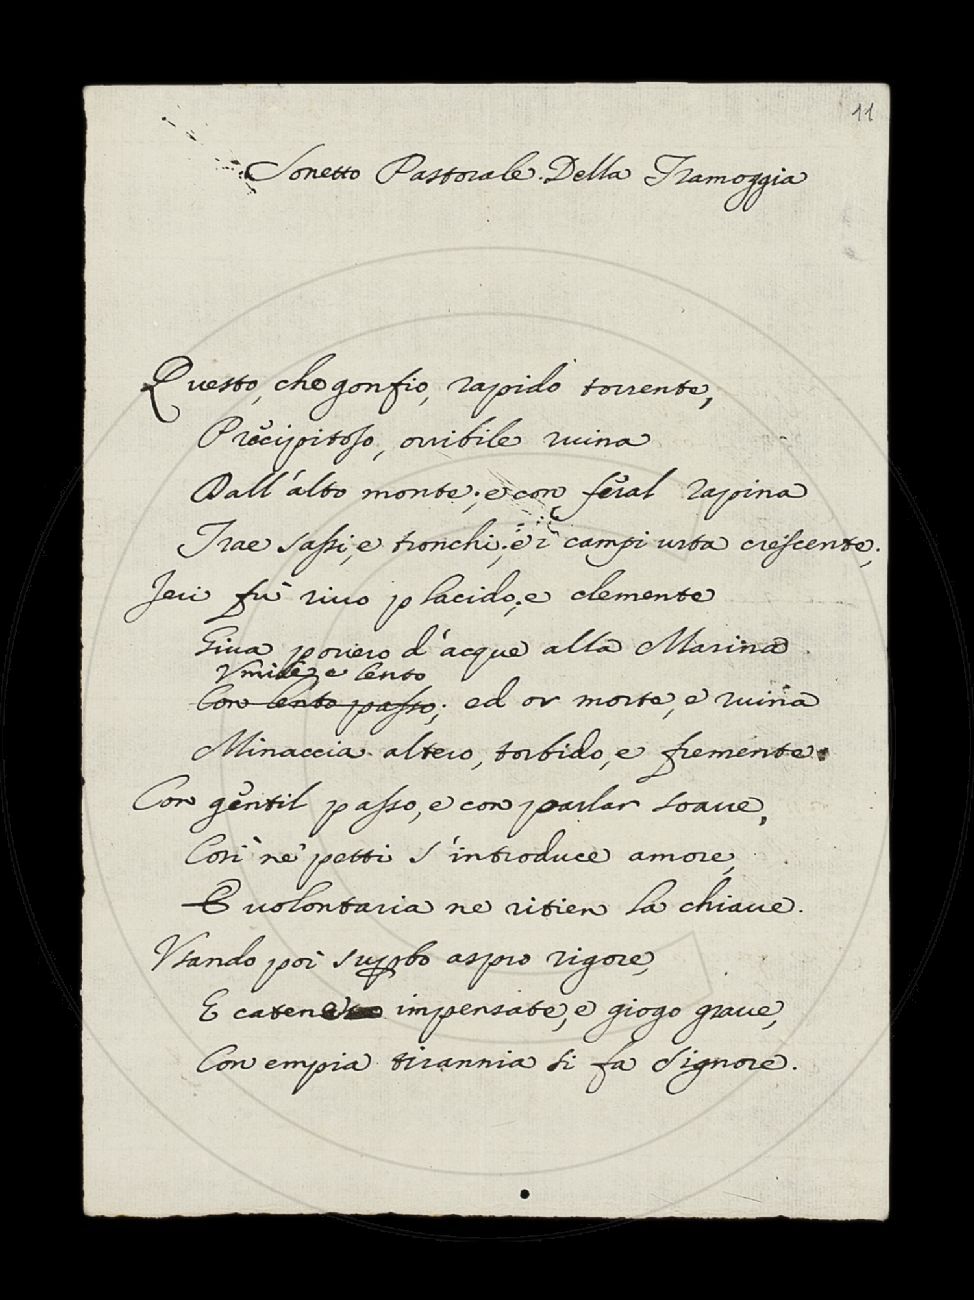 11
Sonetto Pastorale. Della Tramoggia
Questo, che gonfio, rapido torrente,
Precipitoso, orribile ruina
Dall'alto monte; e con feral rapina
Trae sassi, e tronchi, e i campi urta crescente;
Jeri fù rivo placido, e clemente
Giva povero d'acque alla Marina
Vmile, e lento
Con lento passo; ed or morte, e ruina
Minaccia altero, torbido, e fremente.
Con gentil passo, e con parlar soaue,
Così ne' petti s'introduce amore,
E uolontaria ne ritien la chiaue.
Vsando poi superbo aspro rigore,
E catene impensate, e giogo graue,
Con empia tirannia si fà Signore.